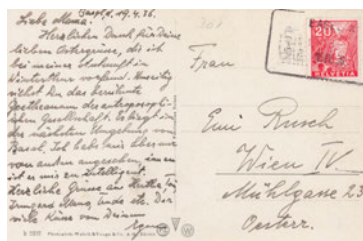 Basel, d. 19.4.36.
Liebe Mama.
Herzlichen Dank für Deine
lieben Ostergrüsse, die ich
bei meiner Ankunft in
Winterthur vorfand. Umseitig
siehst Du das berühmte
Goetheanum der antroposophi-
schen Gesellschaft. Es liegt in
der nächsten Umgebung von
Basel. Ich habe mir aber nur
von aussen angesehen, innen
ist es mir zu intelligent.
Herzliche Grüsse an Hertha,
Irmgard Manz und etc. Dir
viele Küsse von Deinem
Egon
Frau
Emi Rusch
Wien IV
Mühlgasse 23
Oesterr.
20
HELVETIA